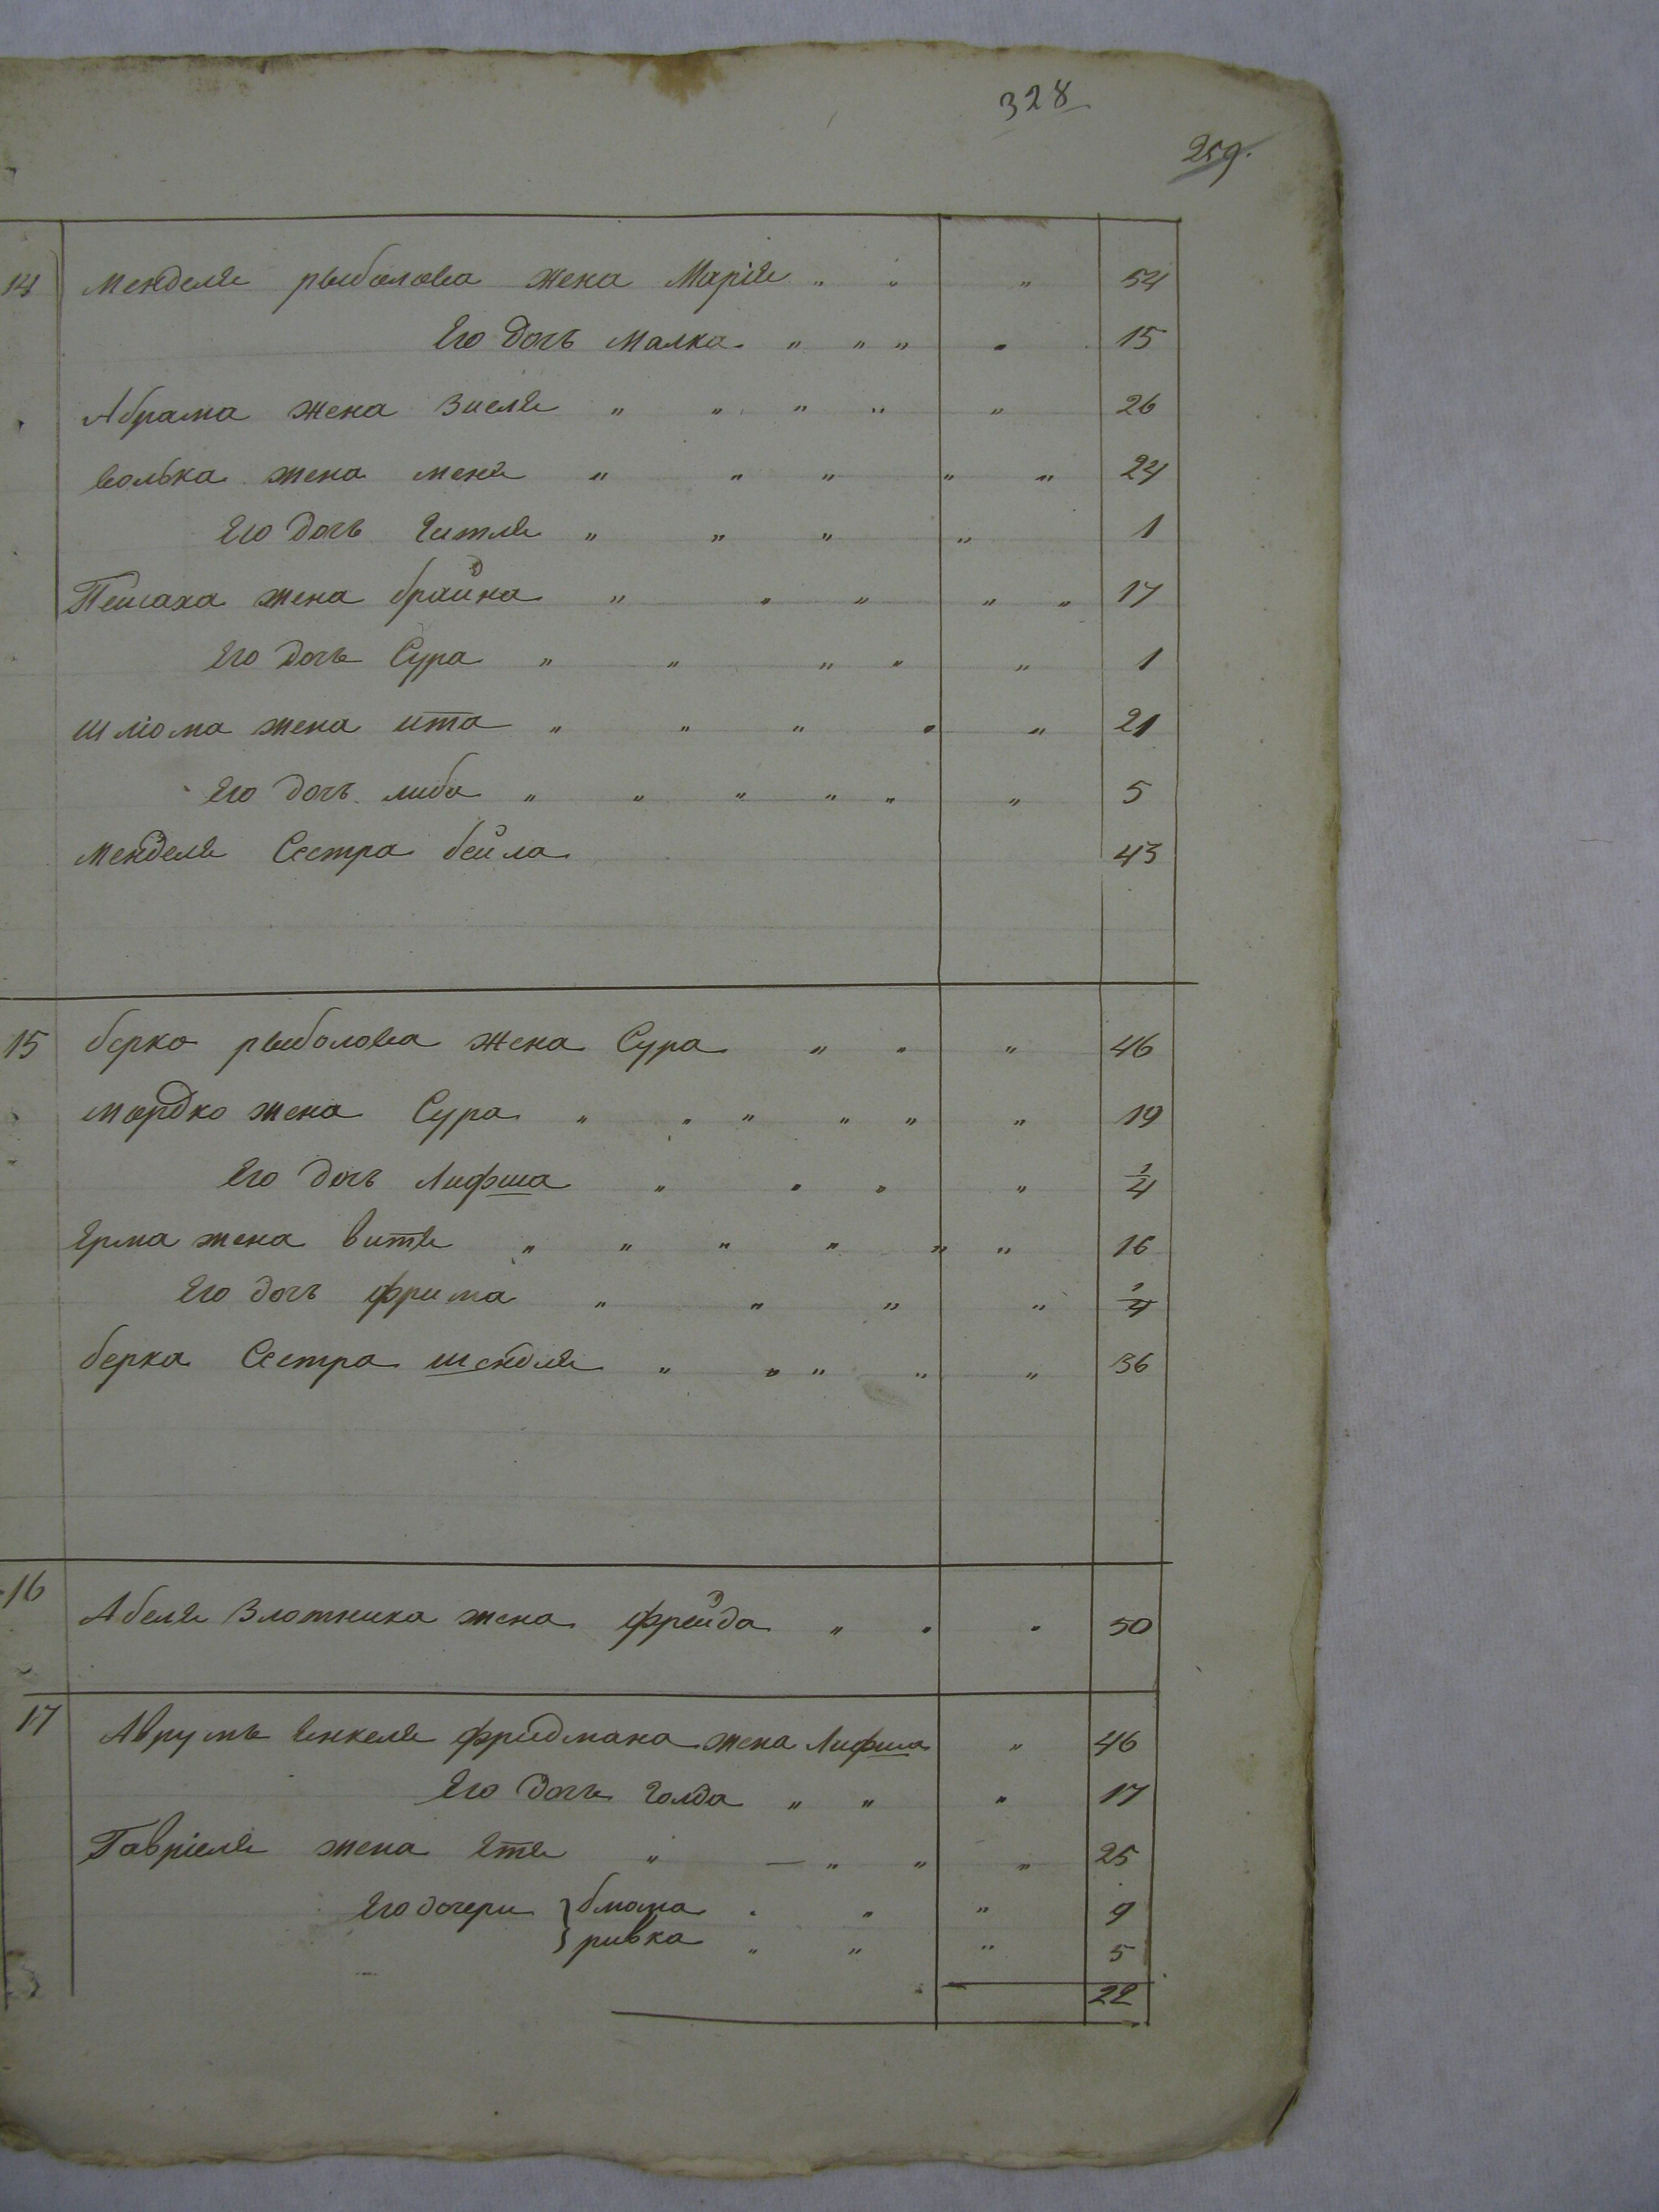 328
259.
14 Менделя рыболова жена Марія " " " 54
Его дочь Малка " " " " 15
Абрама жена Зиеля " " " " " 26
Волька жена меня " " " " " 24
Его дочь Гитля " " " " 1
Пейсаха жена брайна " " " " " 17
Его дочь Сура " " " " " 1
шліома жена ита " " " " " 21
Его дочь либа " " " " " " 5
Менделя Сестра бейла 43
15 берко рыболова жена Сура " " " 46
мордко жена Сура " " " " " " 19
Его дочь Лифша " " " " 1/4
Ерма жена витя " " " " " " 16
Его дочь фрима " " " " 1/4
берка Сестра шендля " " " " " 36
16
Абеля Злотника жена фрейда " " " 50
17 Аврумь Енкеля фридмана жена Лифша " 46
Его дочь голда " " " 17
Гавріеля жена Етя " — " " " 25
Его дочери } блюма " " " 9
ривка " " " 5
22